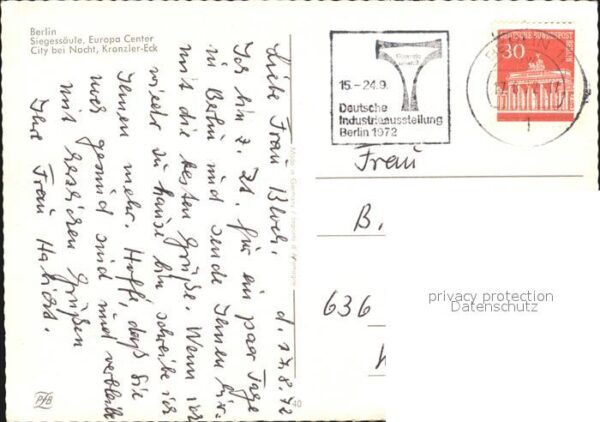 Berlin
Siegessäule, Europa Center
City bei Nacht, Kranzler-Eck
d. 17.8.72
Liebe Frau Bloch.
Ich bin z. Zt. für ein paar Tage
in Berlin und sende Ihnen hier-
mit die besten Grüße. Wenn ich
wieder zu hause bin, schreibe ich
Ihnen mehr. Hoffe, daß Sie
gesund sind und verbleibe
mit herzlichen Grüßen
Ihre Frau
PfB
40
15.-24.9.
Deutsche
Industrieausstellung
Berlin 1972
BERLIN
1
DEUTSCHE BUNDESPOST
BERLIN
30
Frau
B.
636
privacy protection
Datenschutz